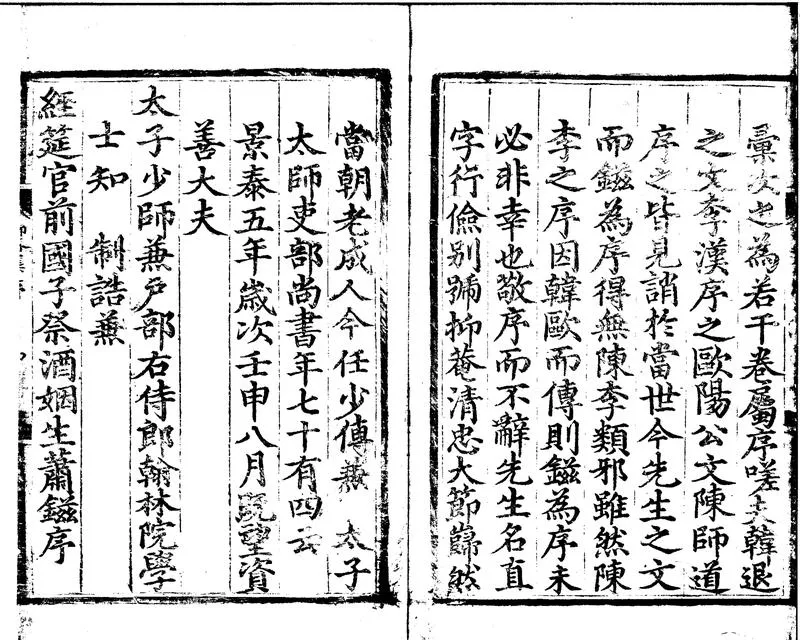 彙次之為若干卷屬序嗟夫韓退
之文李漢序之歐陽公文陳師道
序之皆見誚於當世今先生之文
而鎡為序得無陳李類邪雖然陳
李之序因韓歐而傳則鎡為序未
必非幸也敬序而不辭先生名直
字行儉别號抑菴清忠大節巋然
當朝老成人今任少傅兼 太子
太師吏部尚書年七十有四云
景泰五年歲次壬申八月既望資
善大夫
太子少師兼戶部右侍郎翰林院學
士知 制誥兼
經筵官前國子祭酒姻生蕭鎡序